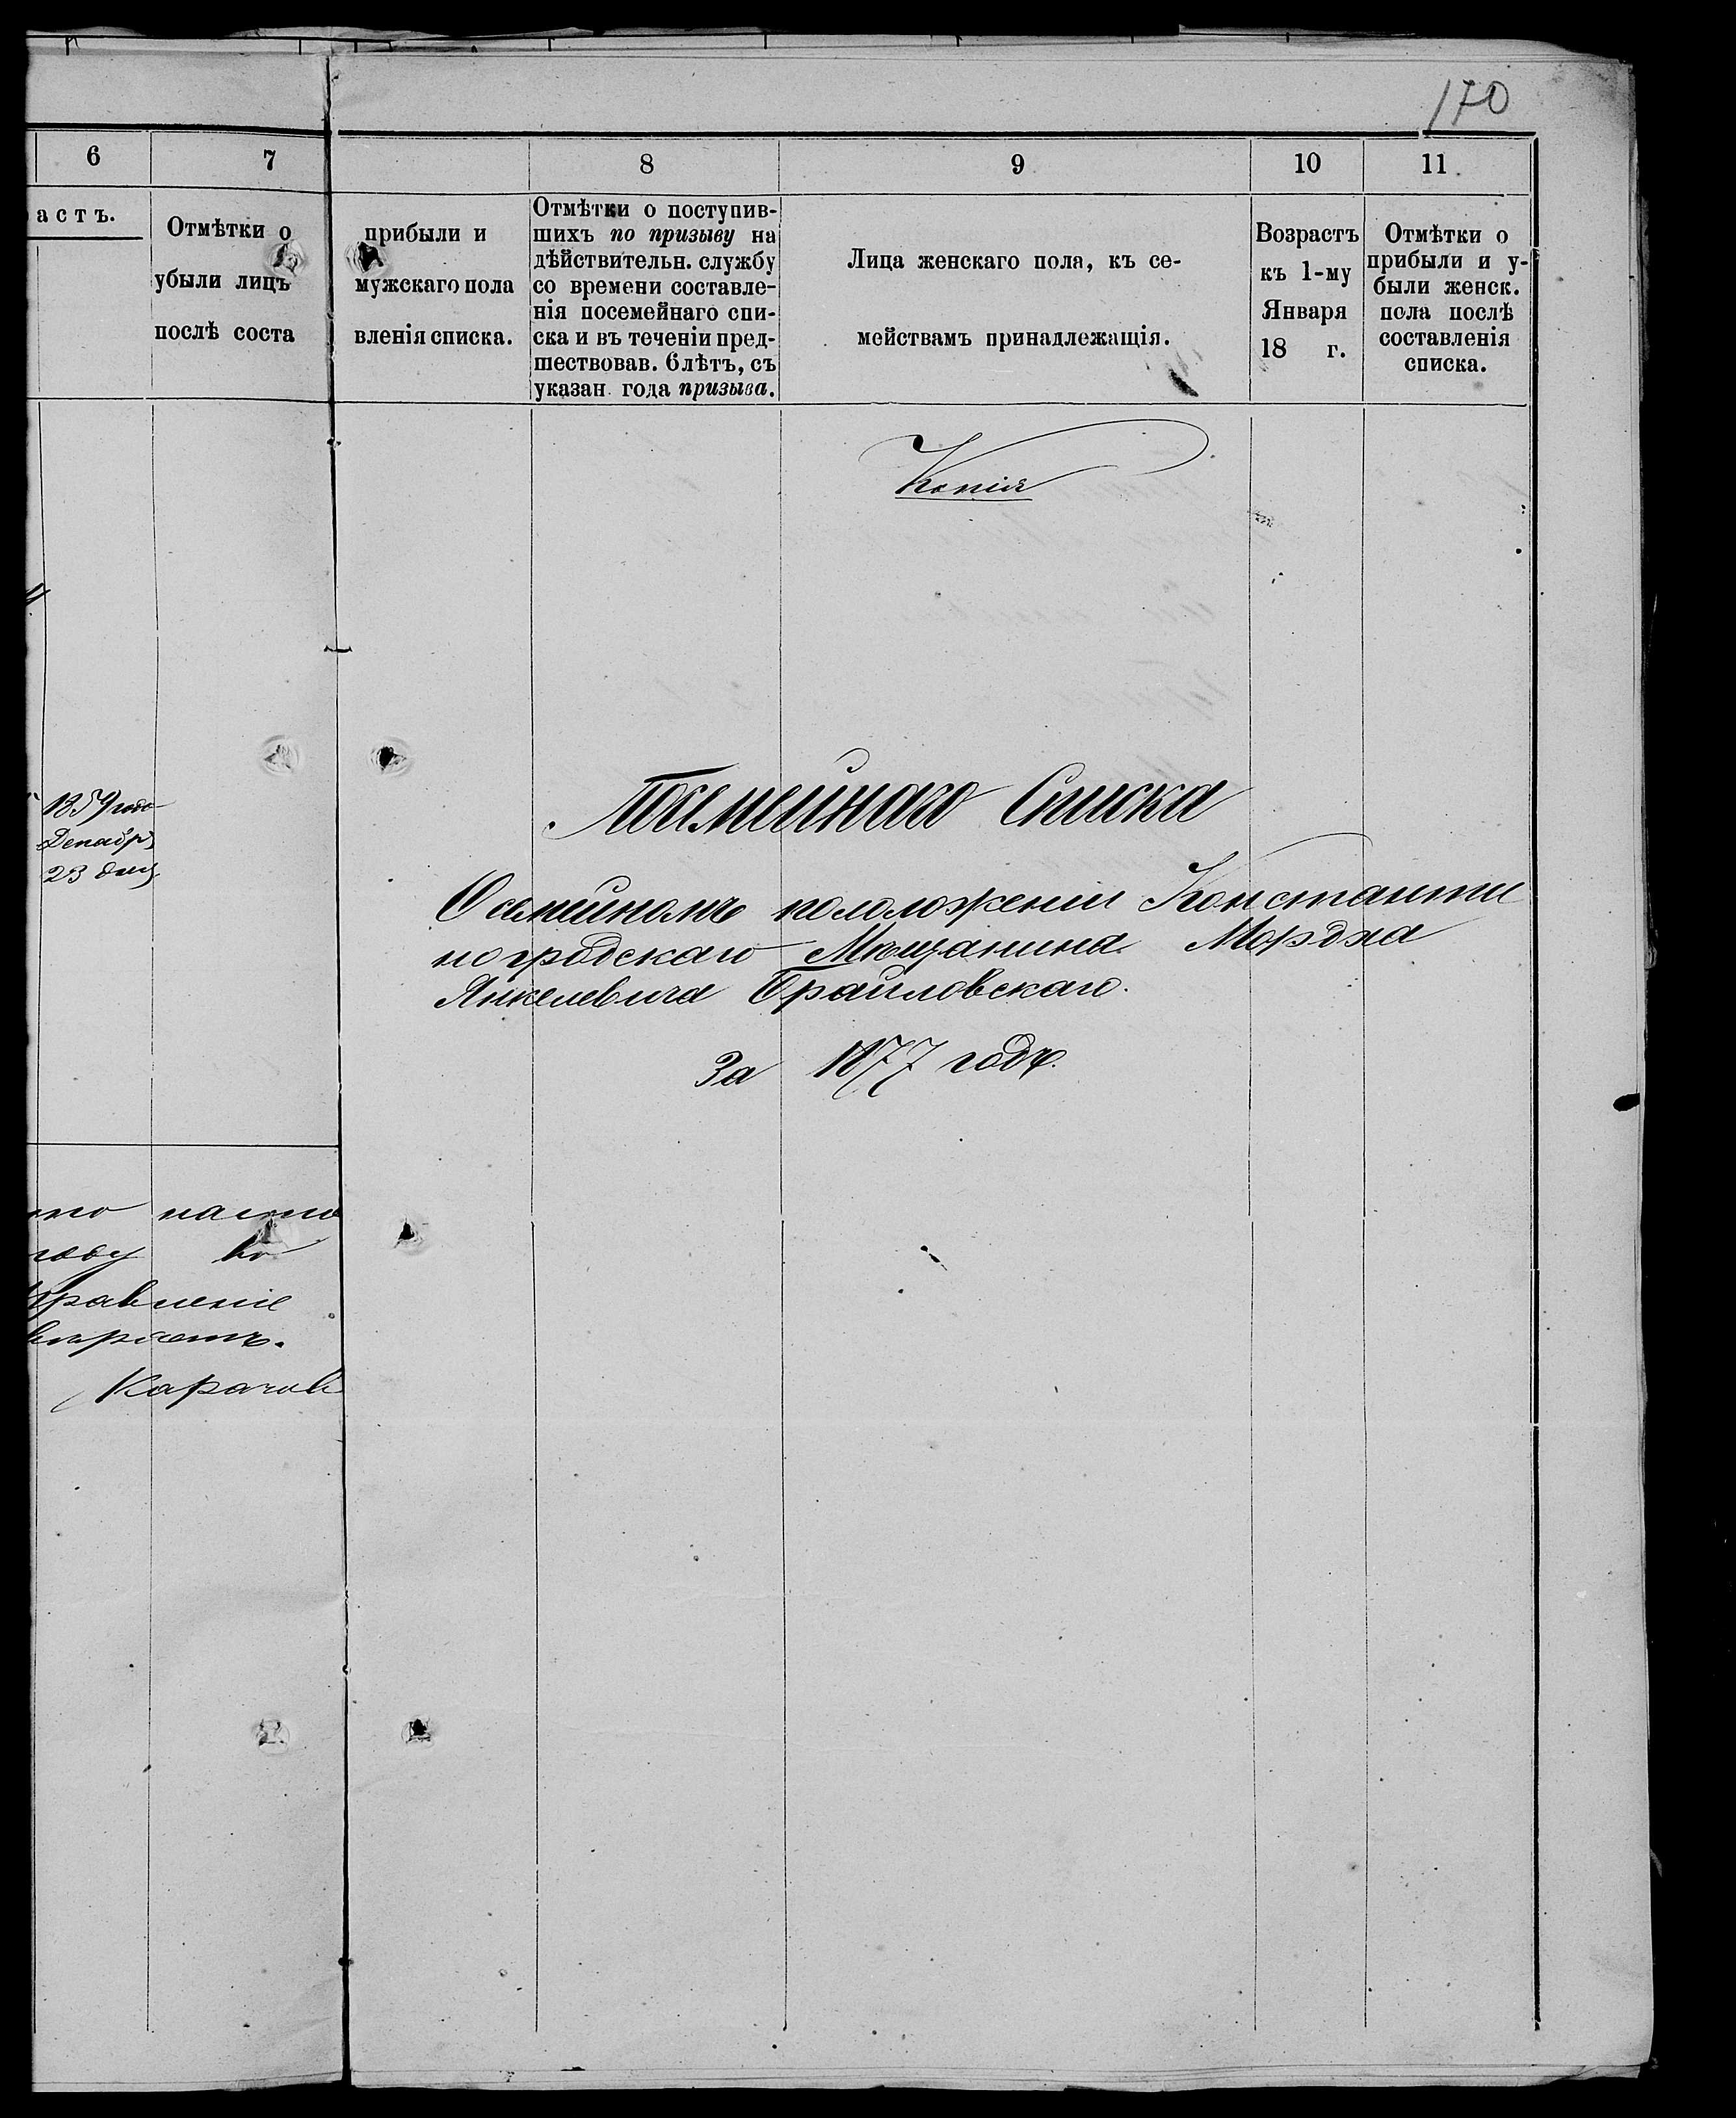 170
6
7
8
9
10
11
астъ.
Отмѣтки о
убыли лицъ
послѣ соста
прибыли и
мужскаго пола
вленія списка.
Отмѣтки о поступив-
шихъ по призыву на
дѣйствительн. службу
со времени составле-
нія посемейнаго спи-
ска и въ теченіи пред-
шествовав. 6 лѣтъ, съ
указан. года призыва.
Лица женскаго пола, къ се-
мействамъ принадлежащія.
Возрастъ
къ 1-му
Января
18 г.
Отмѣтки о
прибыли и у-
были женск.
пола послѣ
составленія
списка.
1859 года
Декабр
23 дня
правленіе
Копія
Посемейнаго Списка
О семейномъ пололоженіи Константи
ноградскаго Мѣщанина Мордка
Янкелевича Браиловскаго.
За 1877 годъ.